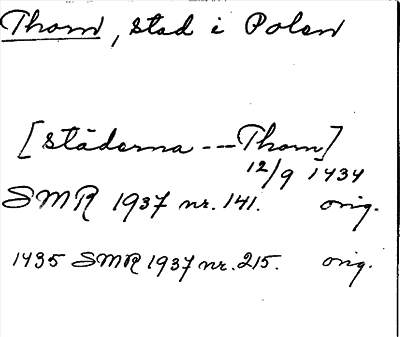 Thorn, stad i Polen
[städerna -- Thorn]
12/9 1434
SMR 1937 nr. 141. orig.
1435 SMR 1937 nr. 215. orig.